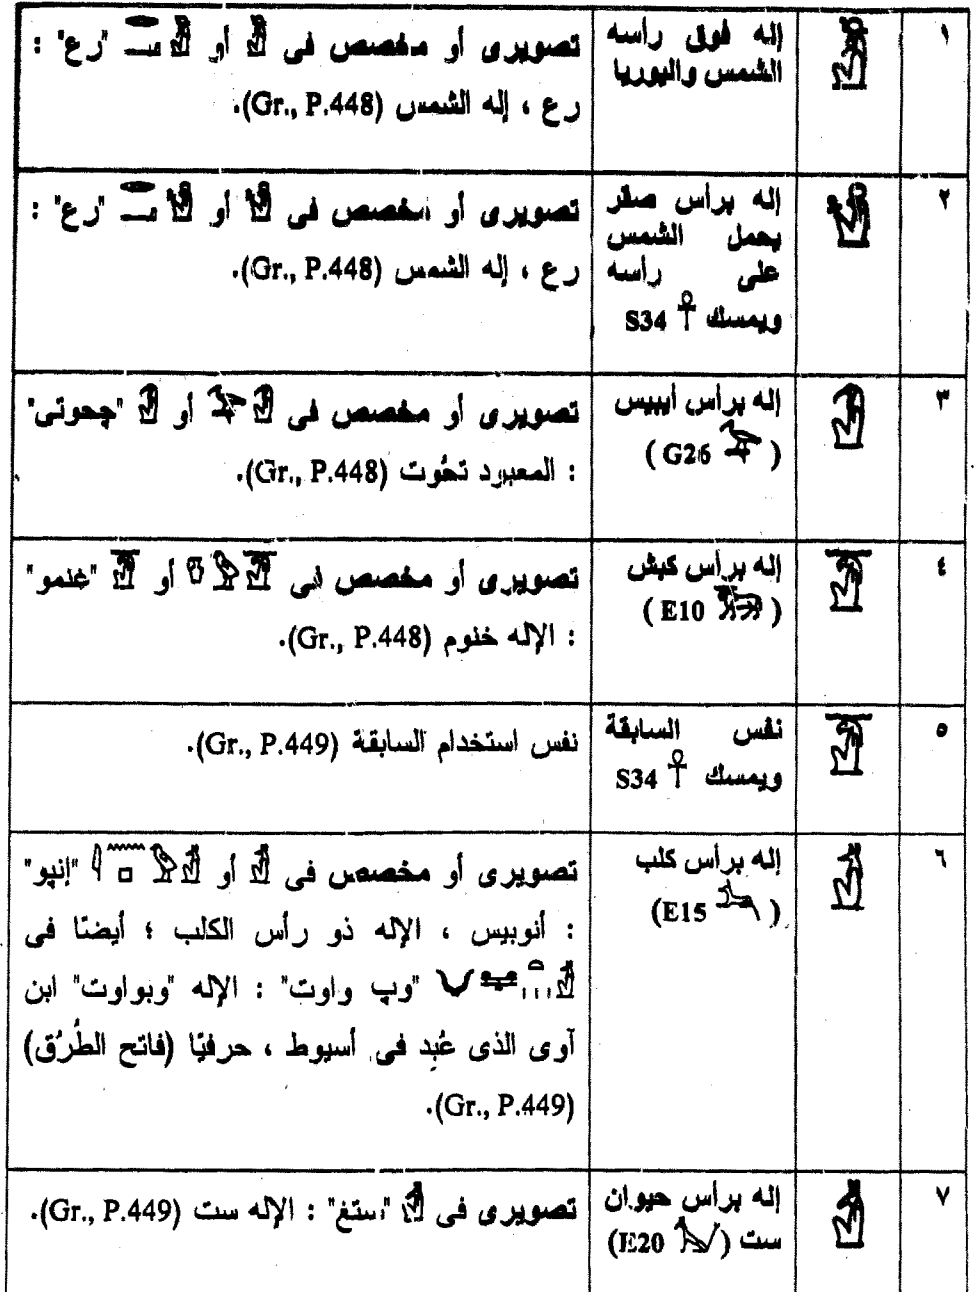 ١
إله فوق رأسه
الشمس واليوريا
تصويرى أو مخصص فى أو "رع" :
رع ، إله الشمس (Gr., P.448).
٢
إله برأس صقر
يحمل الشمس
على رأسه
ويمسك S34
تصويرى أو مخصص فى أو "رع" :
رع ، إله الشمس (Gr., P.448).
٣
إله برأس أيبيس
( G26 )
تصويرى أو مخصص فى أو "چحوتى"
: المعبود تحُوت (Gr., P.448).
٤
إله برأس كبش
( E10 )
تصويرى أو مخصص فى أو "غنمو"
: الإله خنوم (Gr., P.448).
٥
نفس السابقة
ويمسك S34
نفس استخدام السابقة (Gr., P.449).
٦
إله برأس كلب
(E15 )
تصويرى أو مخصص فى أو "إنپو"
: أنوبيس ، الإله ذو رأس الكلب ؛ أيضًا فى
"وپ واوت" : الإله "وبواوت" ابن
آوى الذى عُبِد فى أسيوط ، حرفيًا (فاتح الطُرُق)
(Gr., P.449).
٧
إله برأس حيوان
ست (E20 )
تصويرى فى "ستغ" : الإله ست (Gr., P.449).